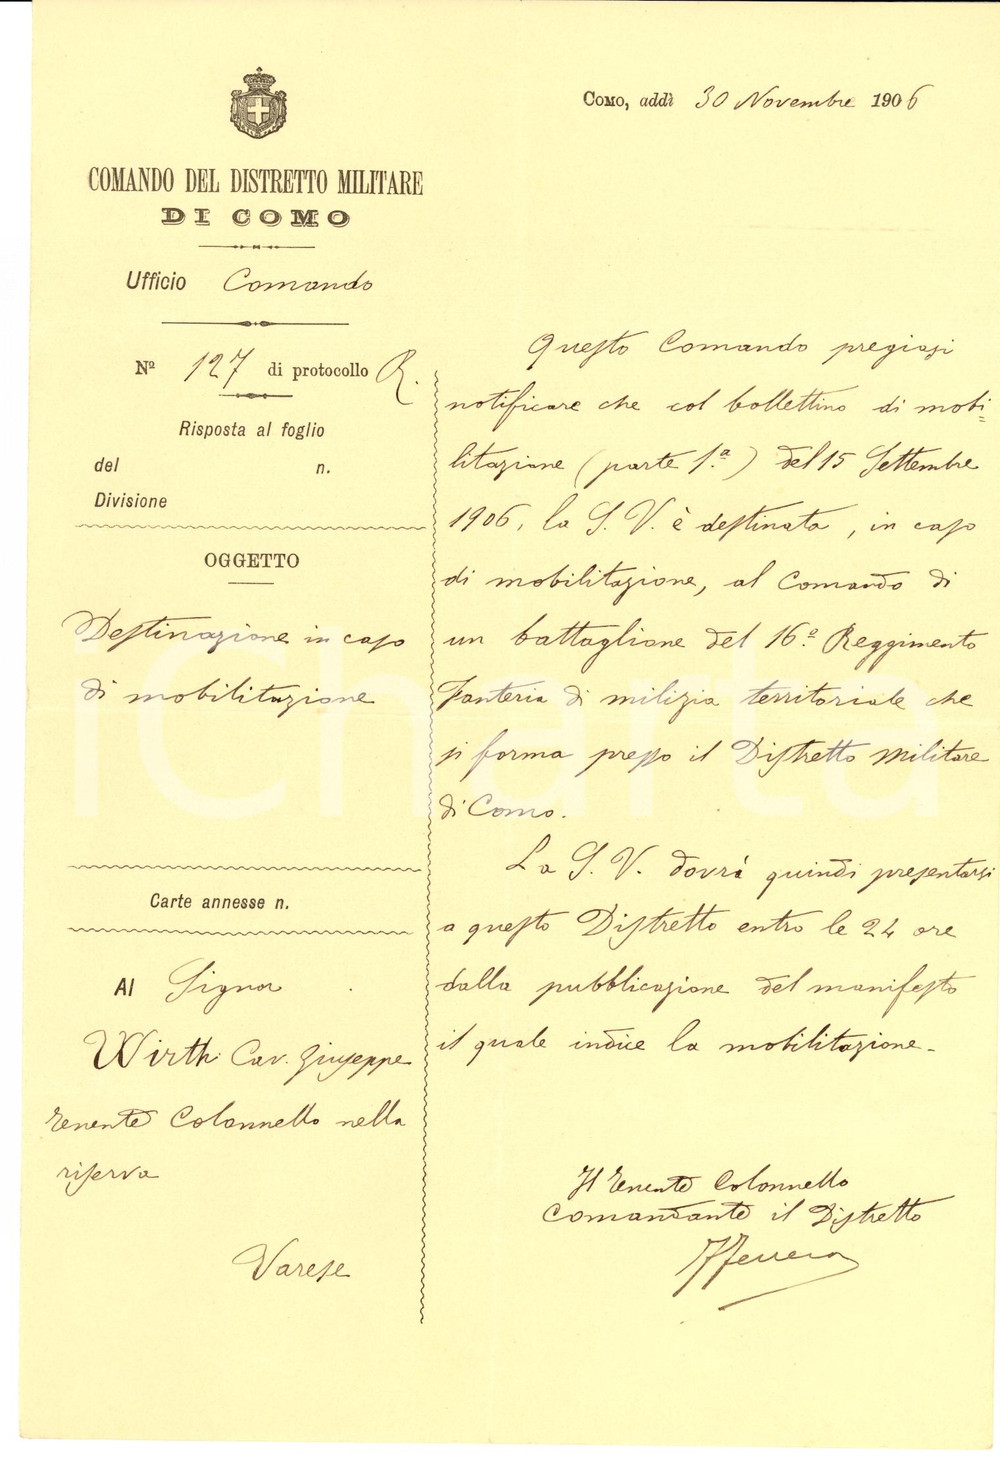 Como, addì 30 Novembre 1906
COMANDO DEL DISTRETTO MILITARE
DI COMO
Ufficio Comando
Nº 127 di protocollo R.
Risposta al foglio
del n.
Divisione
OGGETTO
Destinazione in caso
di mobilitazione
Carte annesse n.
Al Signor
Wirth Cav. Giuseppe
Tenente Colonnello nella
riserva
Varese
Questo Comando pregiasi
notificare che col bollettino di mobi=
litazione (parte 1.ª) del 15 Settembre
1906, la S. V. è destinata, in caso
di mobilitazione, al Comando di
un battaglione del 16º Reggimento
Fanteria di milizia territoriale che
si forma presso il Distretto Militare
di Como.
La S. V. dovrà quindi presentarsi
a questo Distretto entro le 24 ore
dalla pubblicazione del manifesto
il quale indice la mobilitazione.
Il Tenente Colonnello
Comandante il Distretto
iCharta